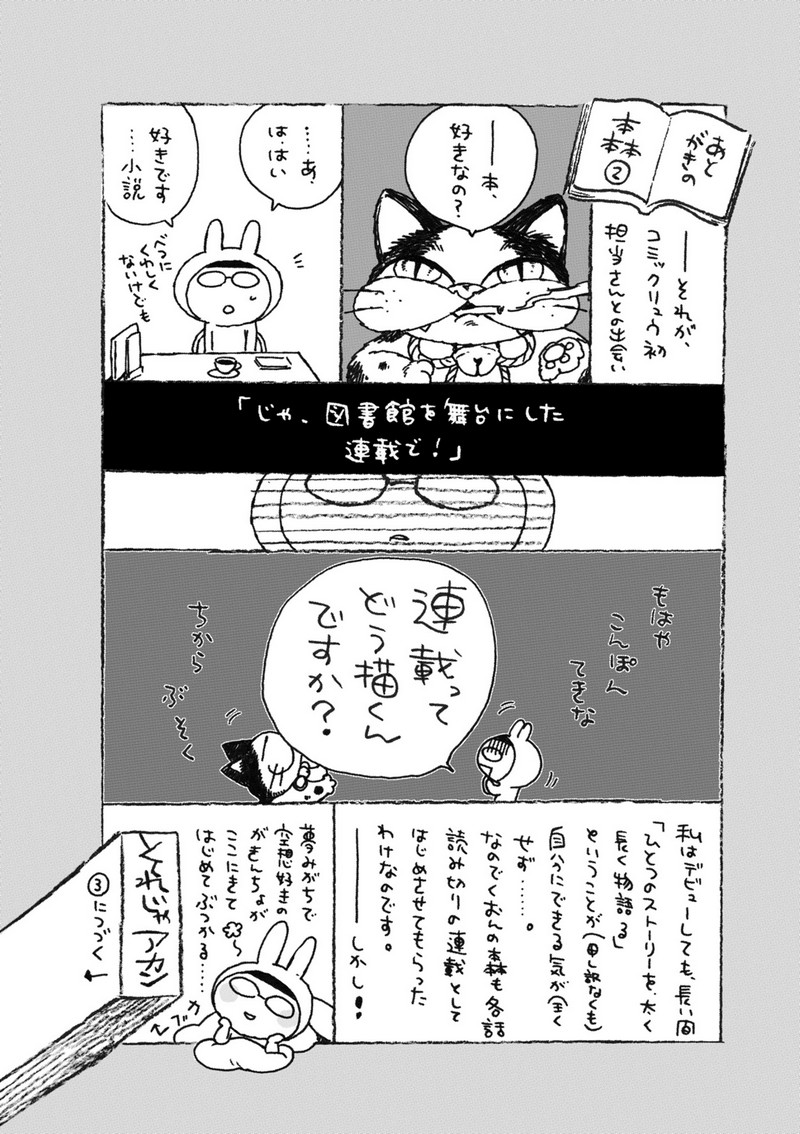 あと
がきの
本森
②
──それが、
コミックリュウ初
担当さんとの出会い
──本、
好きなの？
……あ、
は…はい
好きです
……小説
べつに
くわしく
ないけども
「じゃ、図書館を舞台にした
連載で！」
もはや
こんぽん
てきな
連載って
どう描くん
ですか？
ちから
ぶそく
私はデビューしても、長い間
「ひとつのストーリーを、太く
長く物語る」
ということが（申し訳なくも）
自分にできる気が（全く
せず……。
なのでくおんの本森も各話
読み切りの連載として
はじめさせてもらった
わけなのです。
──しかし！
夢みがちで
空想好きの
がきんちょが
ここにきて
はじめてぶつかる……
プカ
～
とれじゃアカン
③につづく